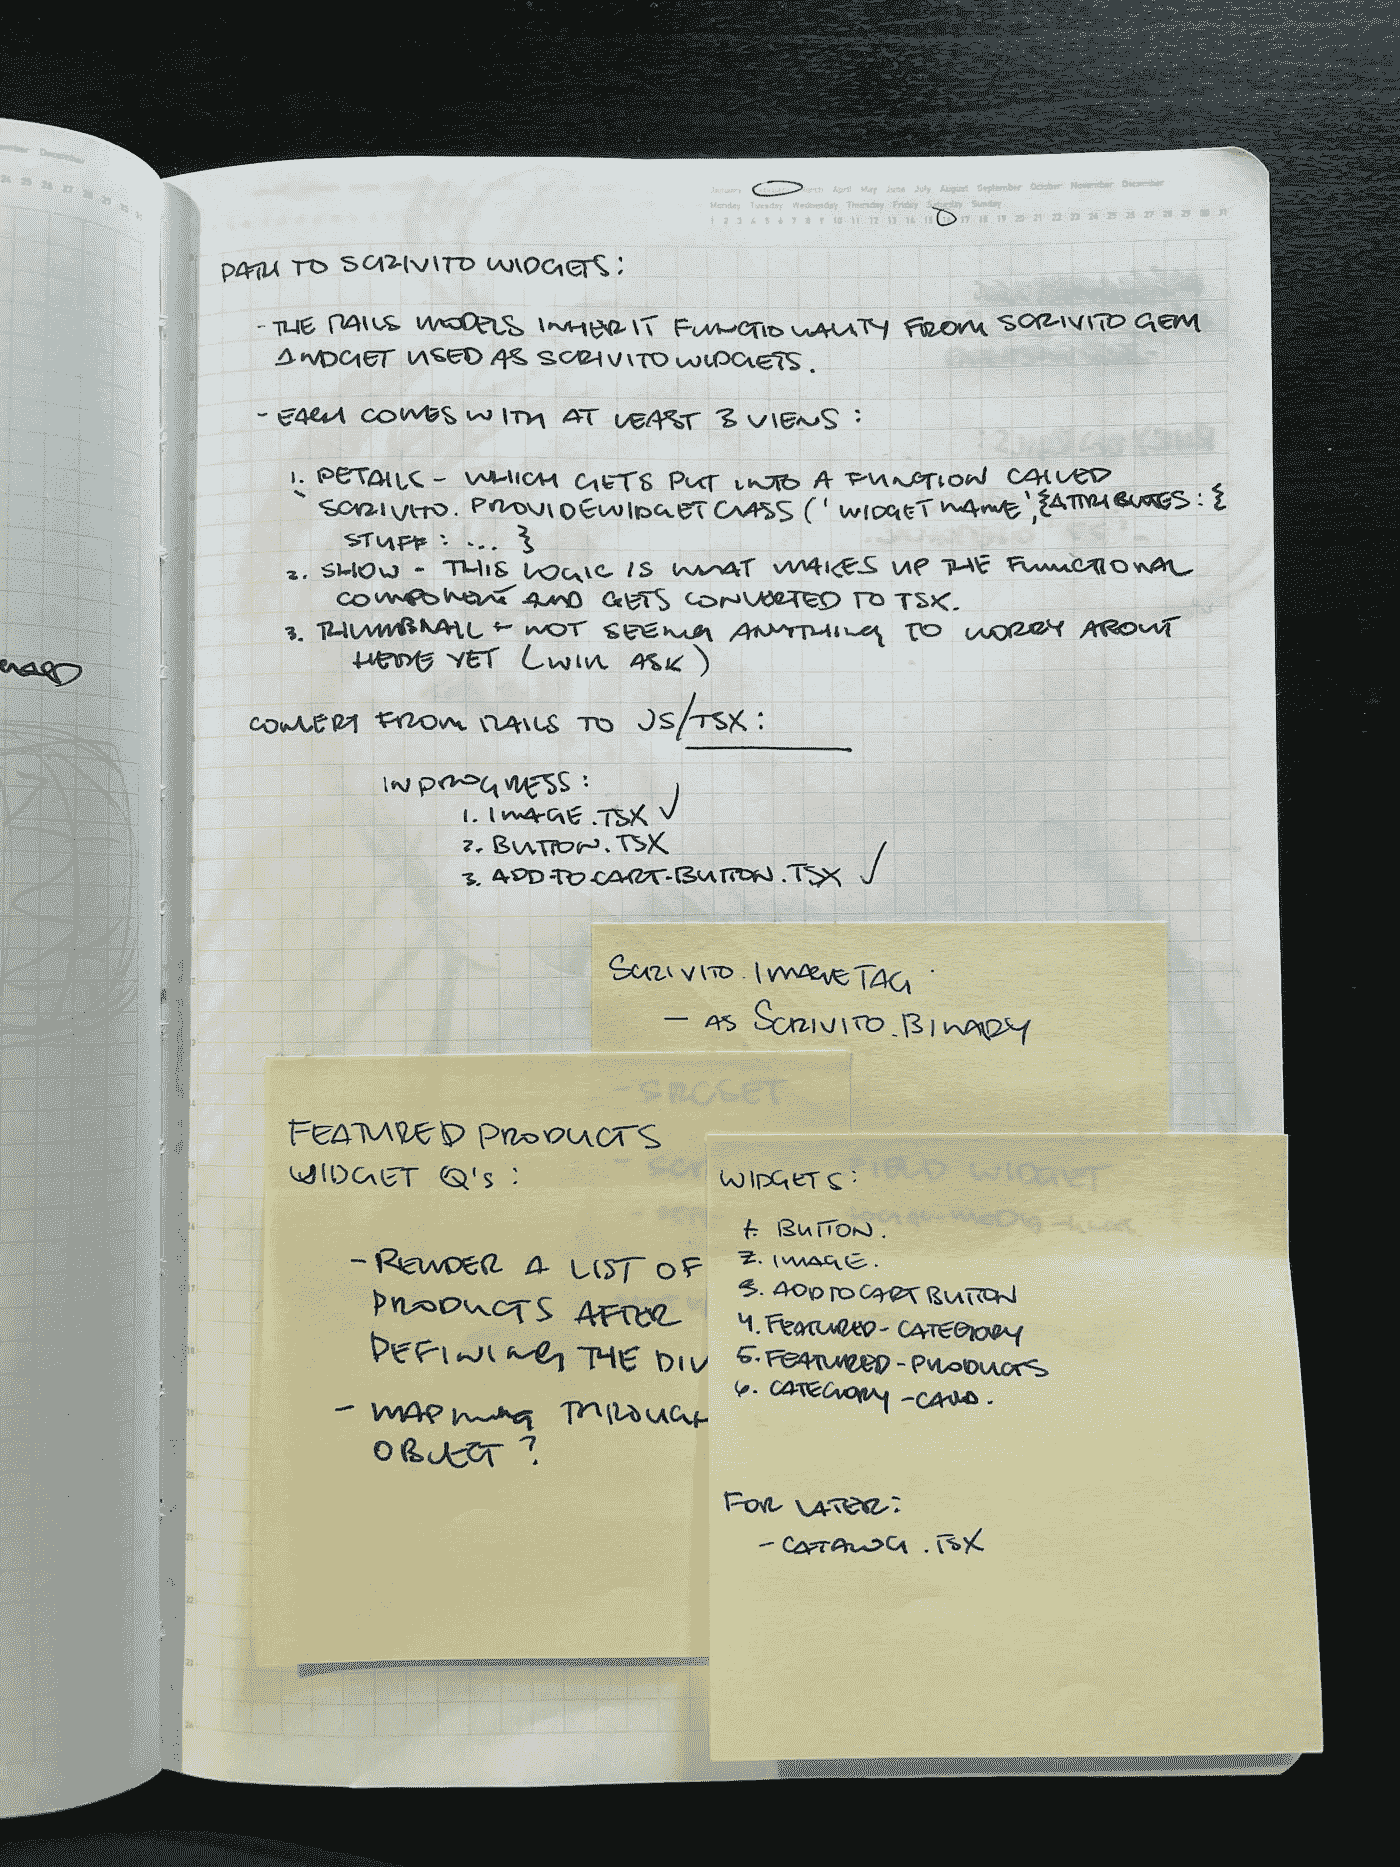 January March April May June July August September October November December
Monday Tuesday Wednesday Thursday Friday Saturday Sunday
1 2 3 4 5 6 7 8 9 10 11 12 13 14 15 16 17 18 19 20 21 22 23 24 25 26 27 28 29 30 31
PATH TO SCRIVITO WIDGETS:
- THE RAILS MODELS INHERIT FUNCTIONALITY FROM SCRIVITO GEM
AND GET USED AS SCRIVITO WIDGETS.
- EACH COMES WITH AT LEAST 3 VIEWS:
1. DETAILS - WHICH GETS PUT INTO A FUNCTION CALLED
`SCRIVITO.PROVIDEWIDGETCLASS('WIDGET NAME',{ATTRIBUTES:{
STUFF: ... }
2. SHOW - THIS LOGIC IS WHAT MAKES UP THE FUNCTIONAL
COMPONENT AND GETS CONVERTED TO TSX.
3. THUMBNAIL - NOT SEEING ANYTHING TO WORRY ABOUT
HERE YET (WILL ASK)
CONVERT FROM RAILS TO JS/TSX:
IN PROGRESS:
1. IMAGE.TSX ✓
2. BUTTON.TSX
3. ADD-TO-CART-BUTTON.TSX ✓
SCRIVITO.IMAGETAG
- AS SCRIVITO.BINARY
- SRCSET
FIELD WIDGET
FEATURED PRODUCTS
WIDGET Q's:
- RENDER A LIST OF
PRODUCTS AFTER
DEFINING THE DIV
- MAPPING THROUGH
OBJECT?
WIDGETS:
1. BUTTON.
2. IMAGE.
3. ADD TO CART BUTTON
4. FEATURED-CATEGORY
5. FEATURED-PRODUCTS
6. CATEGORY-CARD.
FOR LATER:
- CATALOG.TSX